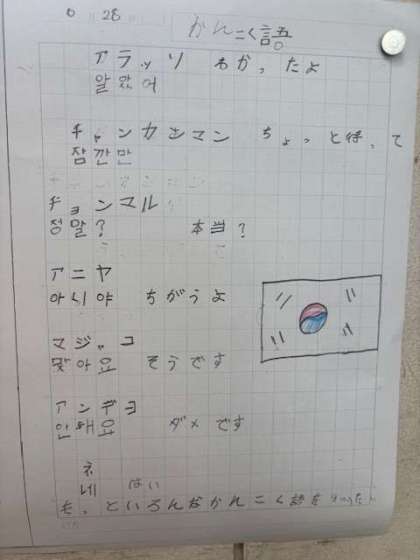 28
かんこく語
アラッソ わかったよ
알았어
チャンカンマン ちょっと待って
잠깐만
チョンマル
정말? 本当?
アニヤ
아니야 ちがうよ
マジョヨ
맞아요 そうです
アンデヨ
안돼요 ダメです
ネ
네 はい
もっといろんなかんこく語を